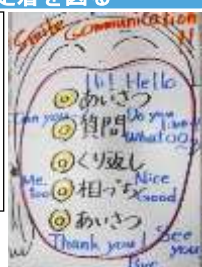 定着を図る
Smile Communication!!
Hi! Hello
◎あいさつ
Can you
◎質問
Do you
What
◎くり返し
Me too
◎相づち
Nice
Good
◎あいさつ
Thank you!
See you
Bye